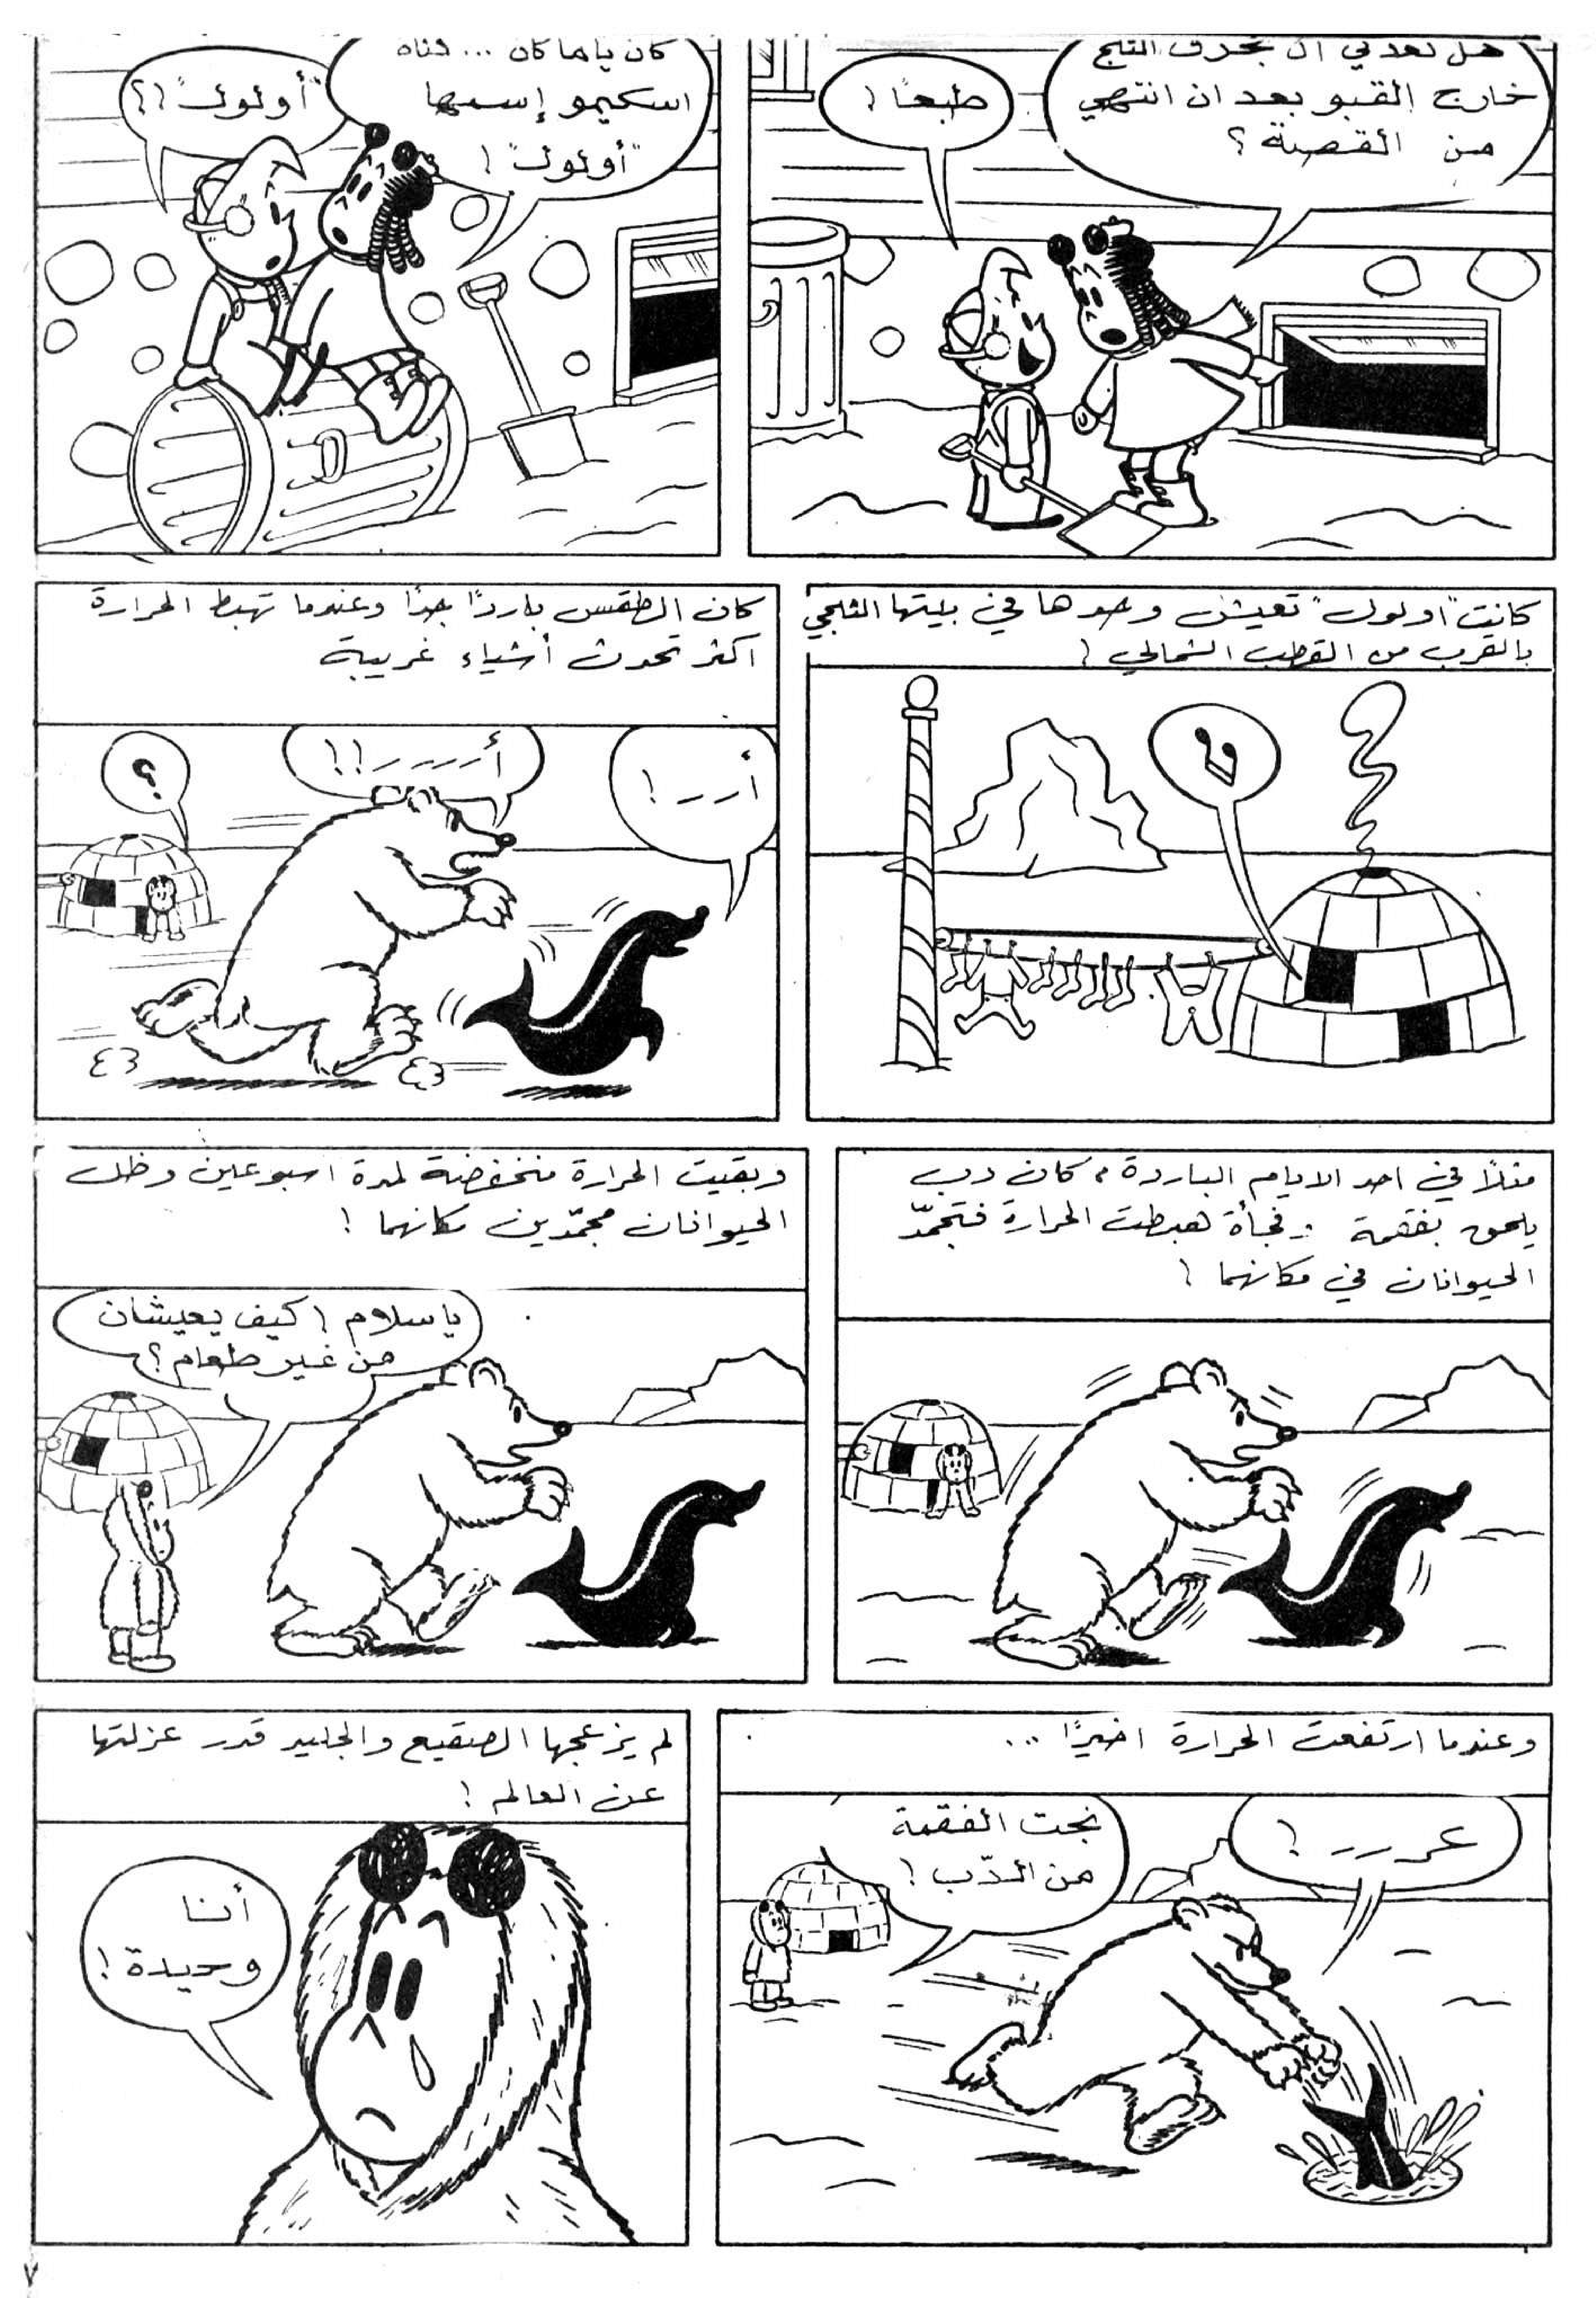 هل تعدني ان تجرف الثلج
خارج القبو بعد ان انتهي
من القصة ؟
طبعًا !
كان ياما كان ... فتاة
اسكيمو إسمها
"أولوك" !
"أولوك" !؟
كانت "اولوك" تعيش وحدها في بيتها الثلجي
بالقرب من القطب الشمالي !
كان الطقس باردًا جدًا وعندما تهبط الحرارة
اكثر تحدث أشياء غريبة
أرر !
أررر !!
؟
مثلًا في احد الايام الباردة ، كان دب
يلحق بفقمة : فجأة هبطت الحرارة فتجمّد
الحيوانان في مكانهما !
وبقيت الحرارة منخفضة لمدة اسبوعين وظل
الحيوانان مجمّدين مكانهما !
يا سلام ! كيف يعيشان
من غير طعام ؟
وعندما ارتفعت الحرارة اخيرًا ...
عررر !
نجت الفقمة
من الدّب !
لم يزعجها الصقيع والجليد قدر عزلتها
عن العالم !
أنا
وحيدة !
٧